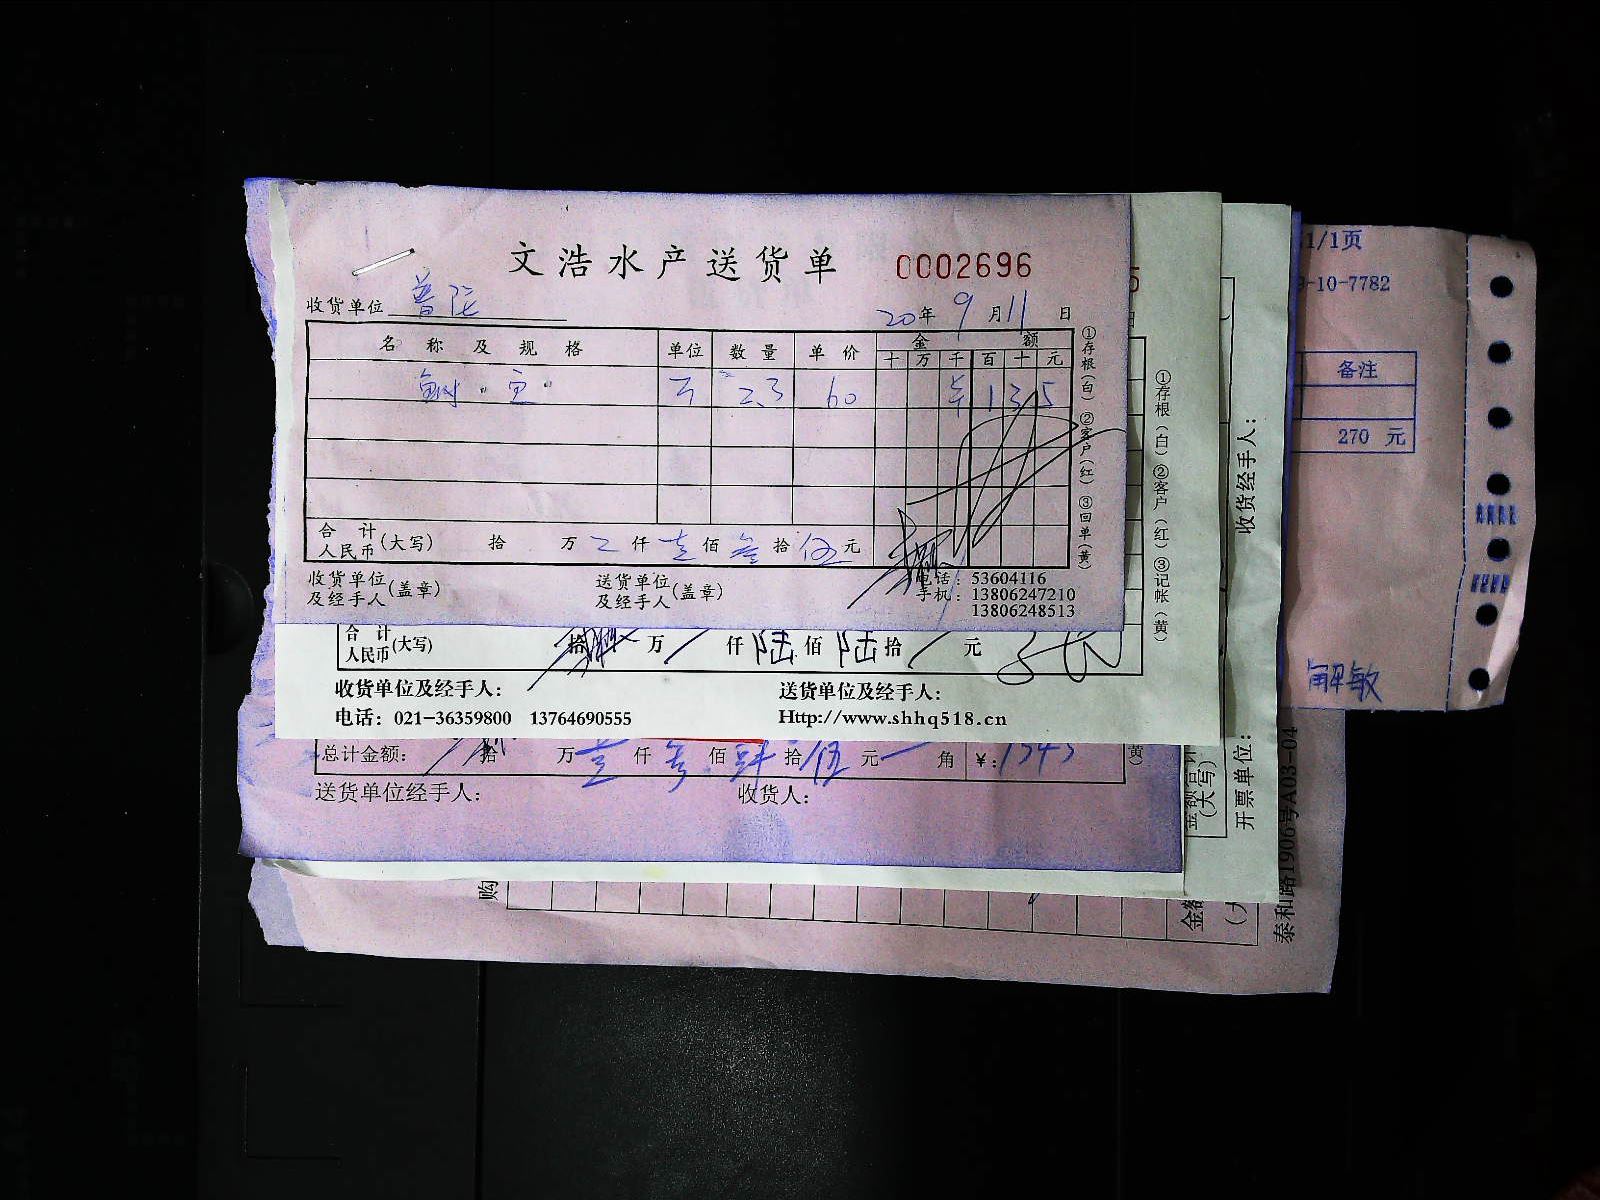 文浩水产送货单 0002696
收货单位 普陀 20年9月11日
名称及规格 单位 数量 单价 金额
十 万 千 百 十 元
鱼 斤 2.3 60 135
合计人民币(大写) 拾 万 仟 壹 佰 叁 拾 伍 元
收货单位及经手人(盖章) 送货单位及经手人(盖章) 电话：53604116
手机：13806247210
13806248513
①存根(白) ②客户(红) ③回单(黄)
合计人民币(大写) 拾 万 仟 陆 佰 陆 拾 元
收货单位及经手人： 送货单位及经手人：
电话：021-36359800 13764690555 Http://www.shhq518.cn
①存根(白) ②客户(红) ③记帐(黄)
总计金额： 拾 万 壹 仟 佰 肆 拾 伍 元 角 ¥：1345
黄)
送货单位经手人： 收货人：
收货经手人：
开票单位：
(大写)
购
金额
泰和路1906号A03-04
1/1页
9-10-7782
备注
270 元
解敏